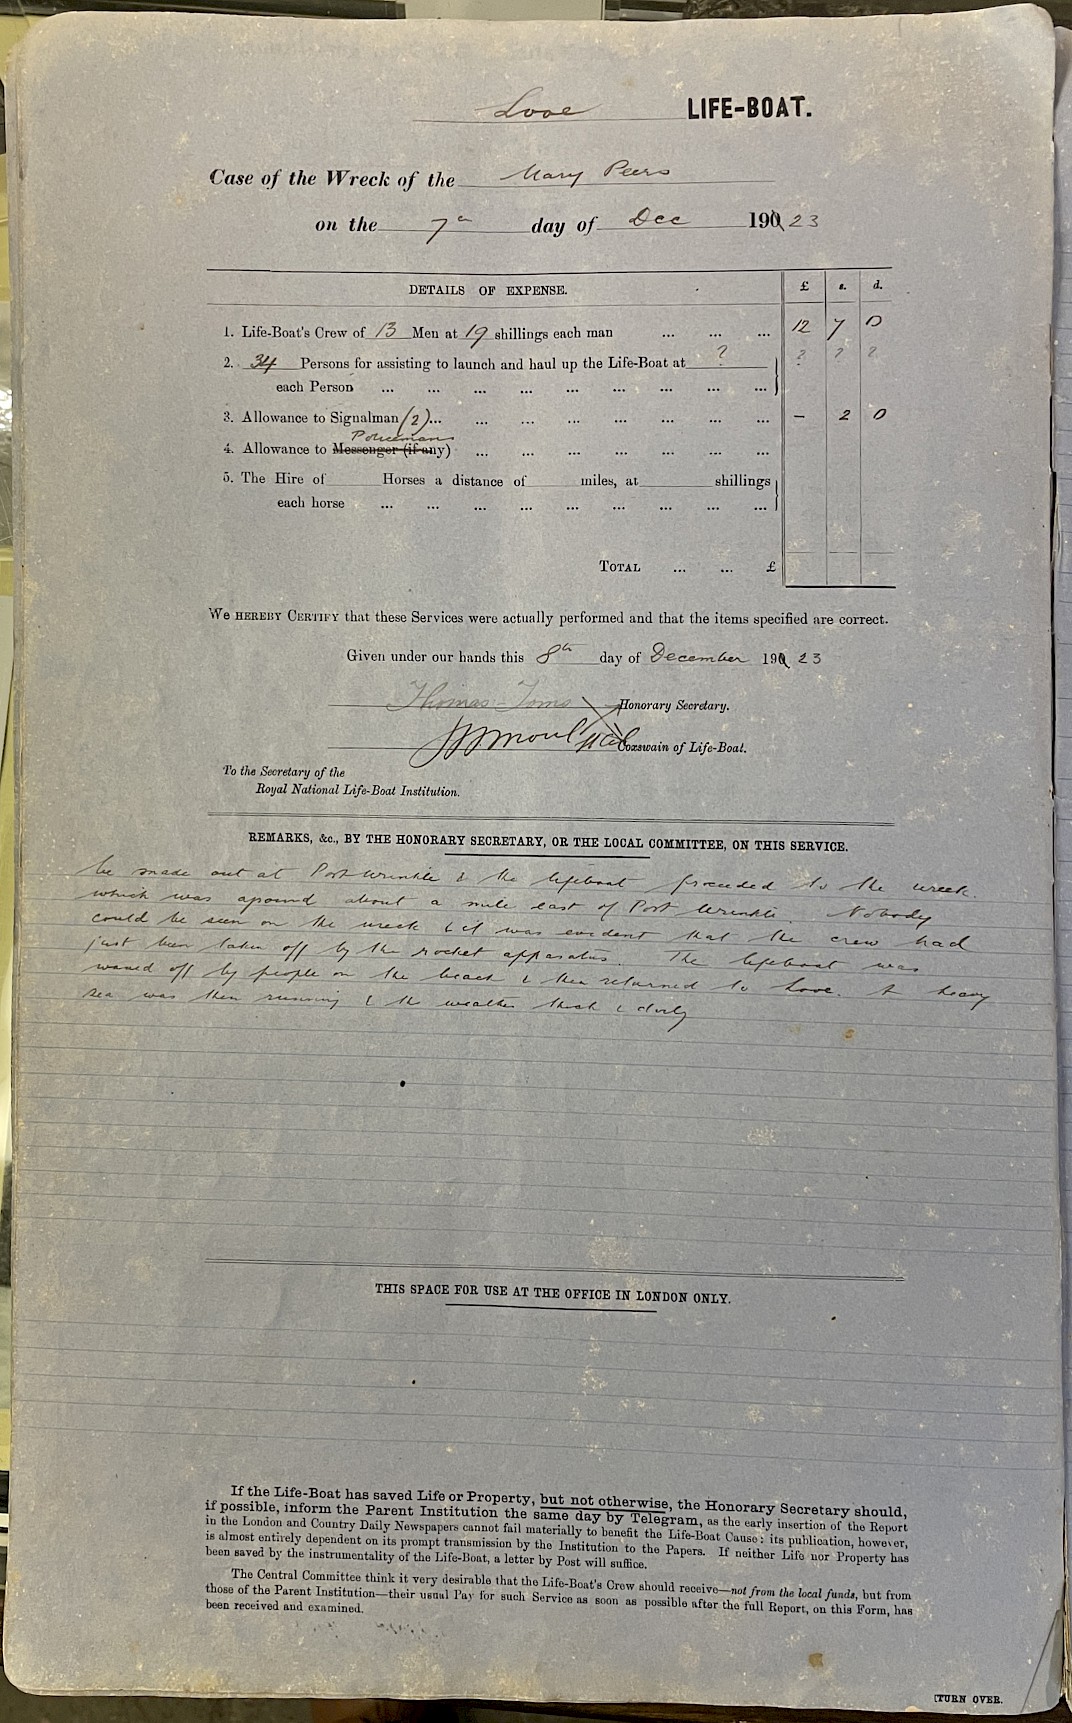 Looe LIFE-BOAT.
Case of the Wreck of the Mary Peers
on the 7th day of Dec 190 23
DETAILS OF EXPENSE. £ s. d.
1. Life-Boat's Crew of 13 Men at 19 shillings each man ... ... ... 12 7 0
2. 34 Persons for assisting to launch and haul up the Life-Boat at ? ? ? ?
each Person ... ... ... ... ... ... ... ... ...
3. Allowance to Signalman (2)... ... ... ... ... ... ... ... – 2 0
Policeman
4. Allowance to Messenger (if any) ... ... ... ... ... ... ...
5. The Hire of Horses a distance of miles, at shillings
each horse ... ... ... ... ... ... ... ... ...
TOTAL ... ... £
WE HEREBY CERTIFY that these Services were actually performed and that the items specified are correct.
Given under our hands this 8th day of December 190 23
Thomas Toms Honorary Secretary.
Coxswain of Life-Boat.
To the Secretary of the
Royal National Life-Boat Institution.
REMARKS, &c., BY THE HONORARY SECRETARY, OR THE LOCAL COMMITTEE, ON THIS SERVICE.
be made out at Port Wrinkle & the lifeboat proceeded to the wreck
which was aground about a mile east of Port Wrinkle. Nobody
could be seen on the wreck & it was evident that the crew had
just been taken off by the rocket apparatus. The lifeboat was
waved off by people on the beach & then returned to Looe. A heavy
sea was then running & the weather thick & dirty
THIS SPACE FOR USE AT THE OFFICE IN LONDON ONLY.
If the Life-Boat has saved Life or Property, but not otherwise, the Honorary Secretary should,
if possible, inform the Parent Institution the same day by Telegram, as the early insertion of the Report
in the London and Country Daily Newspapers cannot fail materially to benefit the Life-Boat Cause: its publication, however,
is almost entirely dependent on its prompt transmission by the Institution to the Papers. If neither Life nor Property has
been saved by the instrumentality of the Life-Boat, a letter by Post will suffice.
The Central Committee think it very desirable that the Life-Boat's Crew should receive—not from the local funds, but from
those of the Parent Institution—their usual Pay for such Service as soon as possible after the full Report, on this Form, has
been received and examined.
[TURN OVER.